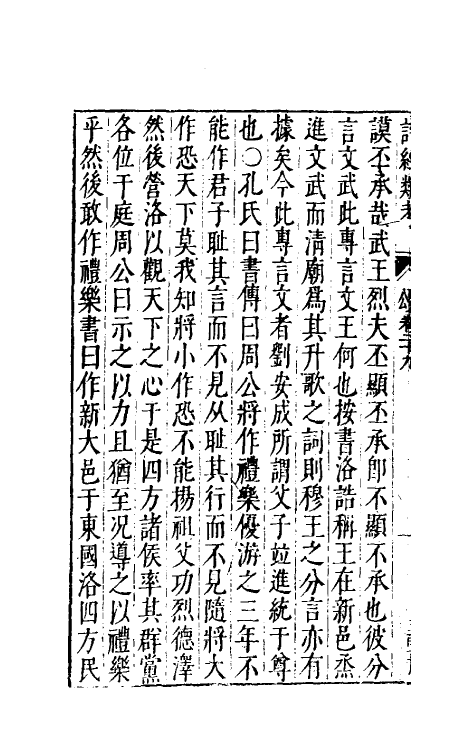 詩經類考
頌卷二十九
謨丕承哉武王烈夫丕顯丕承卽不顯不承也彼分
言文武此專言文王何也按書洛誥稱王在新邑烝
進文武而清廟爲其升歌之詞則穆王之分言亦有
據矣今此專言文者劉安成所謂父子竝進統于尊
也○孔氏曰書傳曰周公將作禮樂優游之三年不
能作君子耻其言而不見从耻其行而不見隨將大
作恐天下莫我知將小作恐不能揚祖父功烈德澤
然後營洛以觀天下之心于是四方諸侯率其群黨
各位于庭周公曰示之以力且猶至况導之以禮樂
乎然後敢作禮樂書曰作新大邑于東國洛四方民